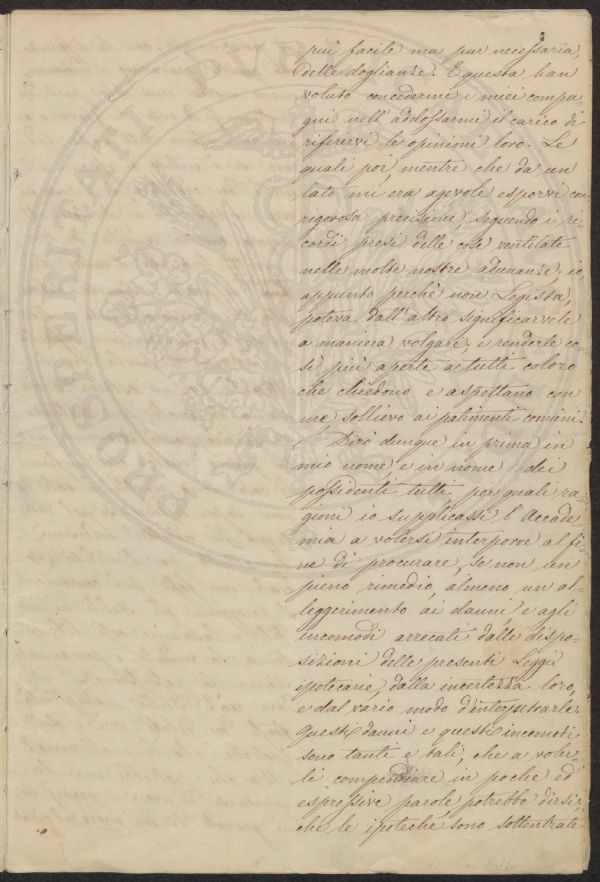 più facile ma pur necessaria,
delle doglianze. E questa han
voluto concedermi i miei compa-
gni nell'addossarmi il carico di
riferirvi le opinioni loro. Le
quali poi, mentre che da un
lato mi era agevole esporvi con
rigorosa precisione, seguendo i ri-
cordi presi delle cose ventilate
nelle molte nostre adunanze; io,
appunto perchè non Legista,
poteva dall'altro significarvele
a maniera volgare; e renderle co-
sì più aperte a tutti coloro
che chiedono e aspettano con
me, sollievo ai patimenti comuni.
Dirò dunque in prima in
mio nome, e in nome dei
possidenti tutti, per quali ra-
gioni io supplicassi l'Accade
mia a volersi interporre al fi-
ne di procurare, se non un
pieno rimedio, almeno un al-
leggerimento ai danni, e agli
incomodi arrecati dalle dispo-
sizioni delle presenti Leggi
ipotecarie, dalla incertezza loro,
e dal vario modo d'interpetrarle.
Questi danni e questi incomodi
sono tanti e tali, che a voler-
li compendiare in poche ed
espressive parole, potrebbe dirsi,
che le ipoteche sono sottentrate
PROSPERITATI PUBL